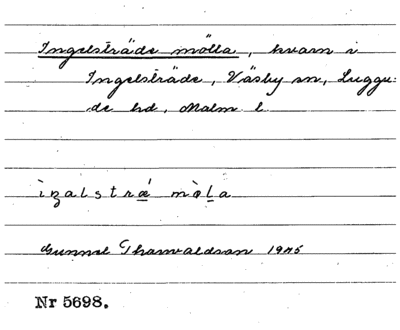 Ingelsträde mölla, kvarn i
Ingelsträde, Väsby sn, Luggu-
de hd, Malm l
ìŋalstrǽ mø̀la
Gunnel Thorvaldson 1945
Nr 5698.